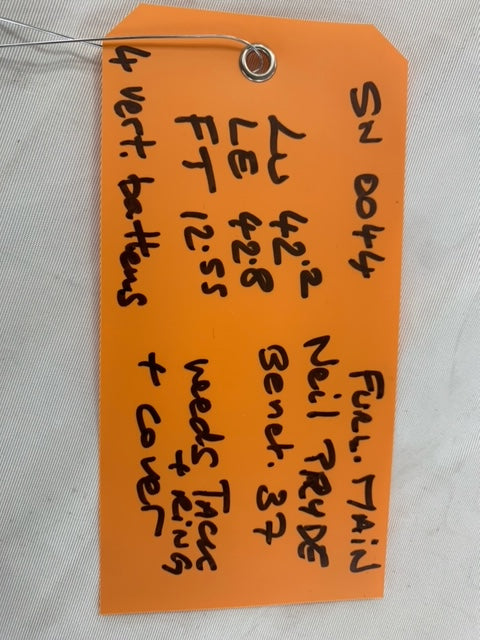 SN 0044 FURL. MAIN
Neil PRYDE
LU 42.2 Benet. 37
LE 42.8
FT 12.55 needs TACK
+ RING
4 vert. battens + cover